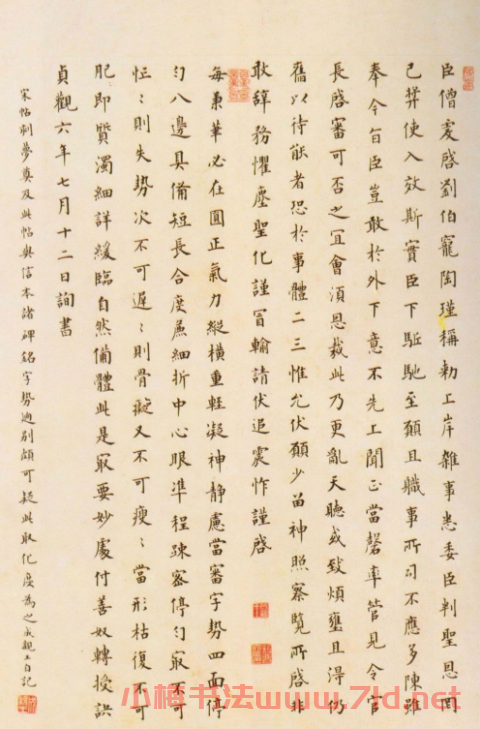 臣僧虔啓劉伯寵陶瑾稱勅上岸雜事悉委臣判聖恩罔
已拜使入效斯實臣下駈馳至願且職事所司不應多陳雖
奉今旨臣豈敢於外下意不先上聞正當罄率管見令官
長啓審可否之宜會須恩裁此乃更亂天聽或致煩壅且得仍
舊以待能者恐於事體二三惟允伏願少留神照察覽所啓非
敢辭務懼塵聖化謹冒輸請伏追震怍謹啓
每秉筆必在圓正氣力縱橫重輕凝神靜慮當審字勢四面停
勻八邊具備短長合度麁細折中心眼準程踈密停勻最不可
忙〻則失勢次不可遲〻則骨癡又不可瘦〻當形枯復不可
肥即質濁細詳緩臨自然備體此是最要妙處付善奴轉授訣
貞觀六年七月十二日詢書
宋帖刺夢奠及此帖與信本諸碑銘字勢迥别頗可疑此取化度為之成親王自記
小楷书法www.7ld.net